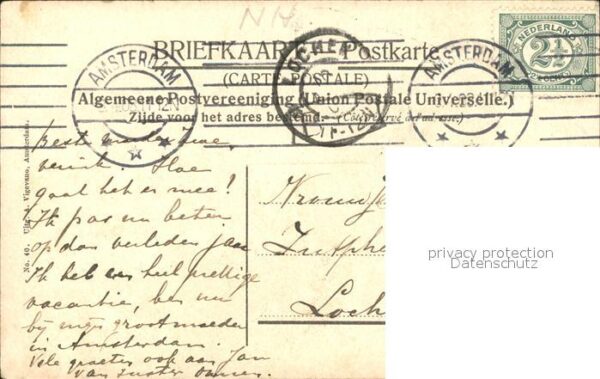 NH
BRIEFKAART Postkarte
(CARTE POSTALE)
Algemeene Postvereeniging (Union Postale Universelle.)
Zijde voor het adres bestemd. (Côté réservé à l'adresse.)
AMSTERDAM
LOCHEM
AMSTERDAM
NEDERLAND
2½
No. 40. Uitg. A. Vigevano, Amsterdam
Beste
Hoe
gaat het er mee?
Ik pas nu beter
op dan verleden jaar
Ik heb een heel prettige
vacantie, ben nu
bij mijn grootmoeder
in Amsterdam.
Vele groeten ook aan Jan
van zuster
Zutphe
Loch
privacy protection
Datenschutz